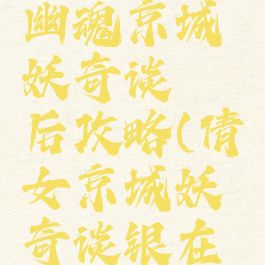 幽魂京城
妖奇谈
后攻略(倩
女京城妖
奇谈银在